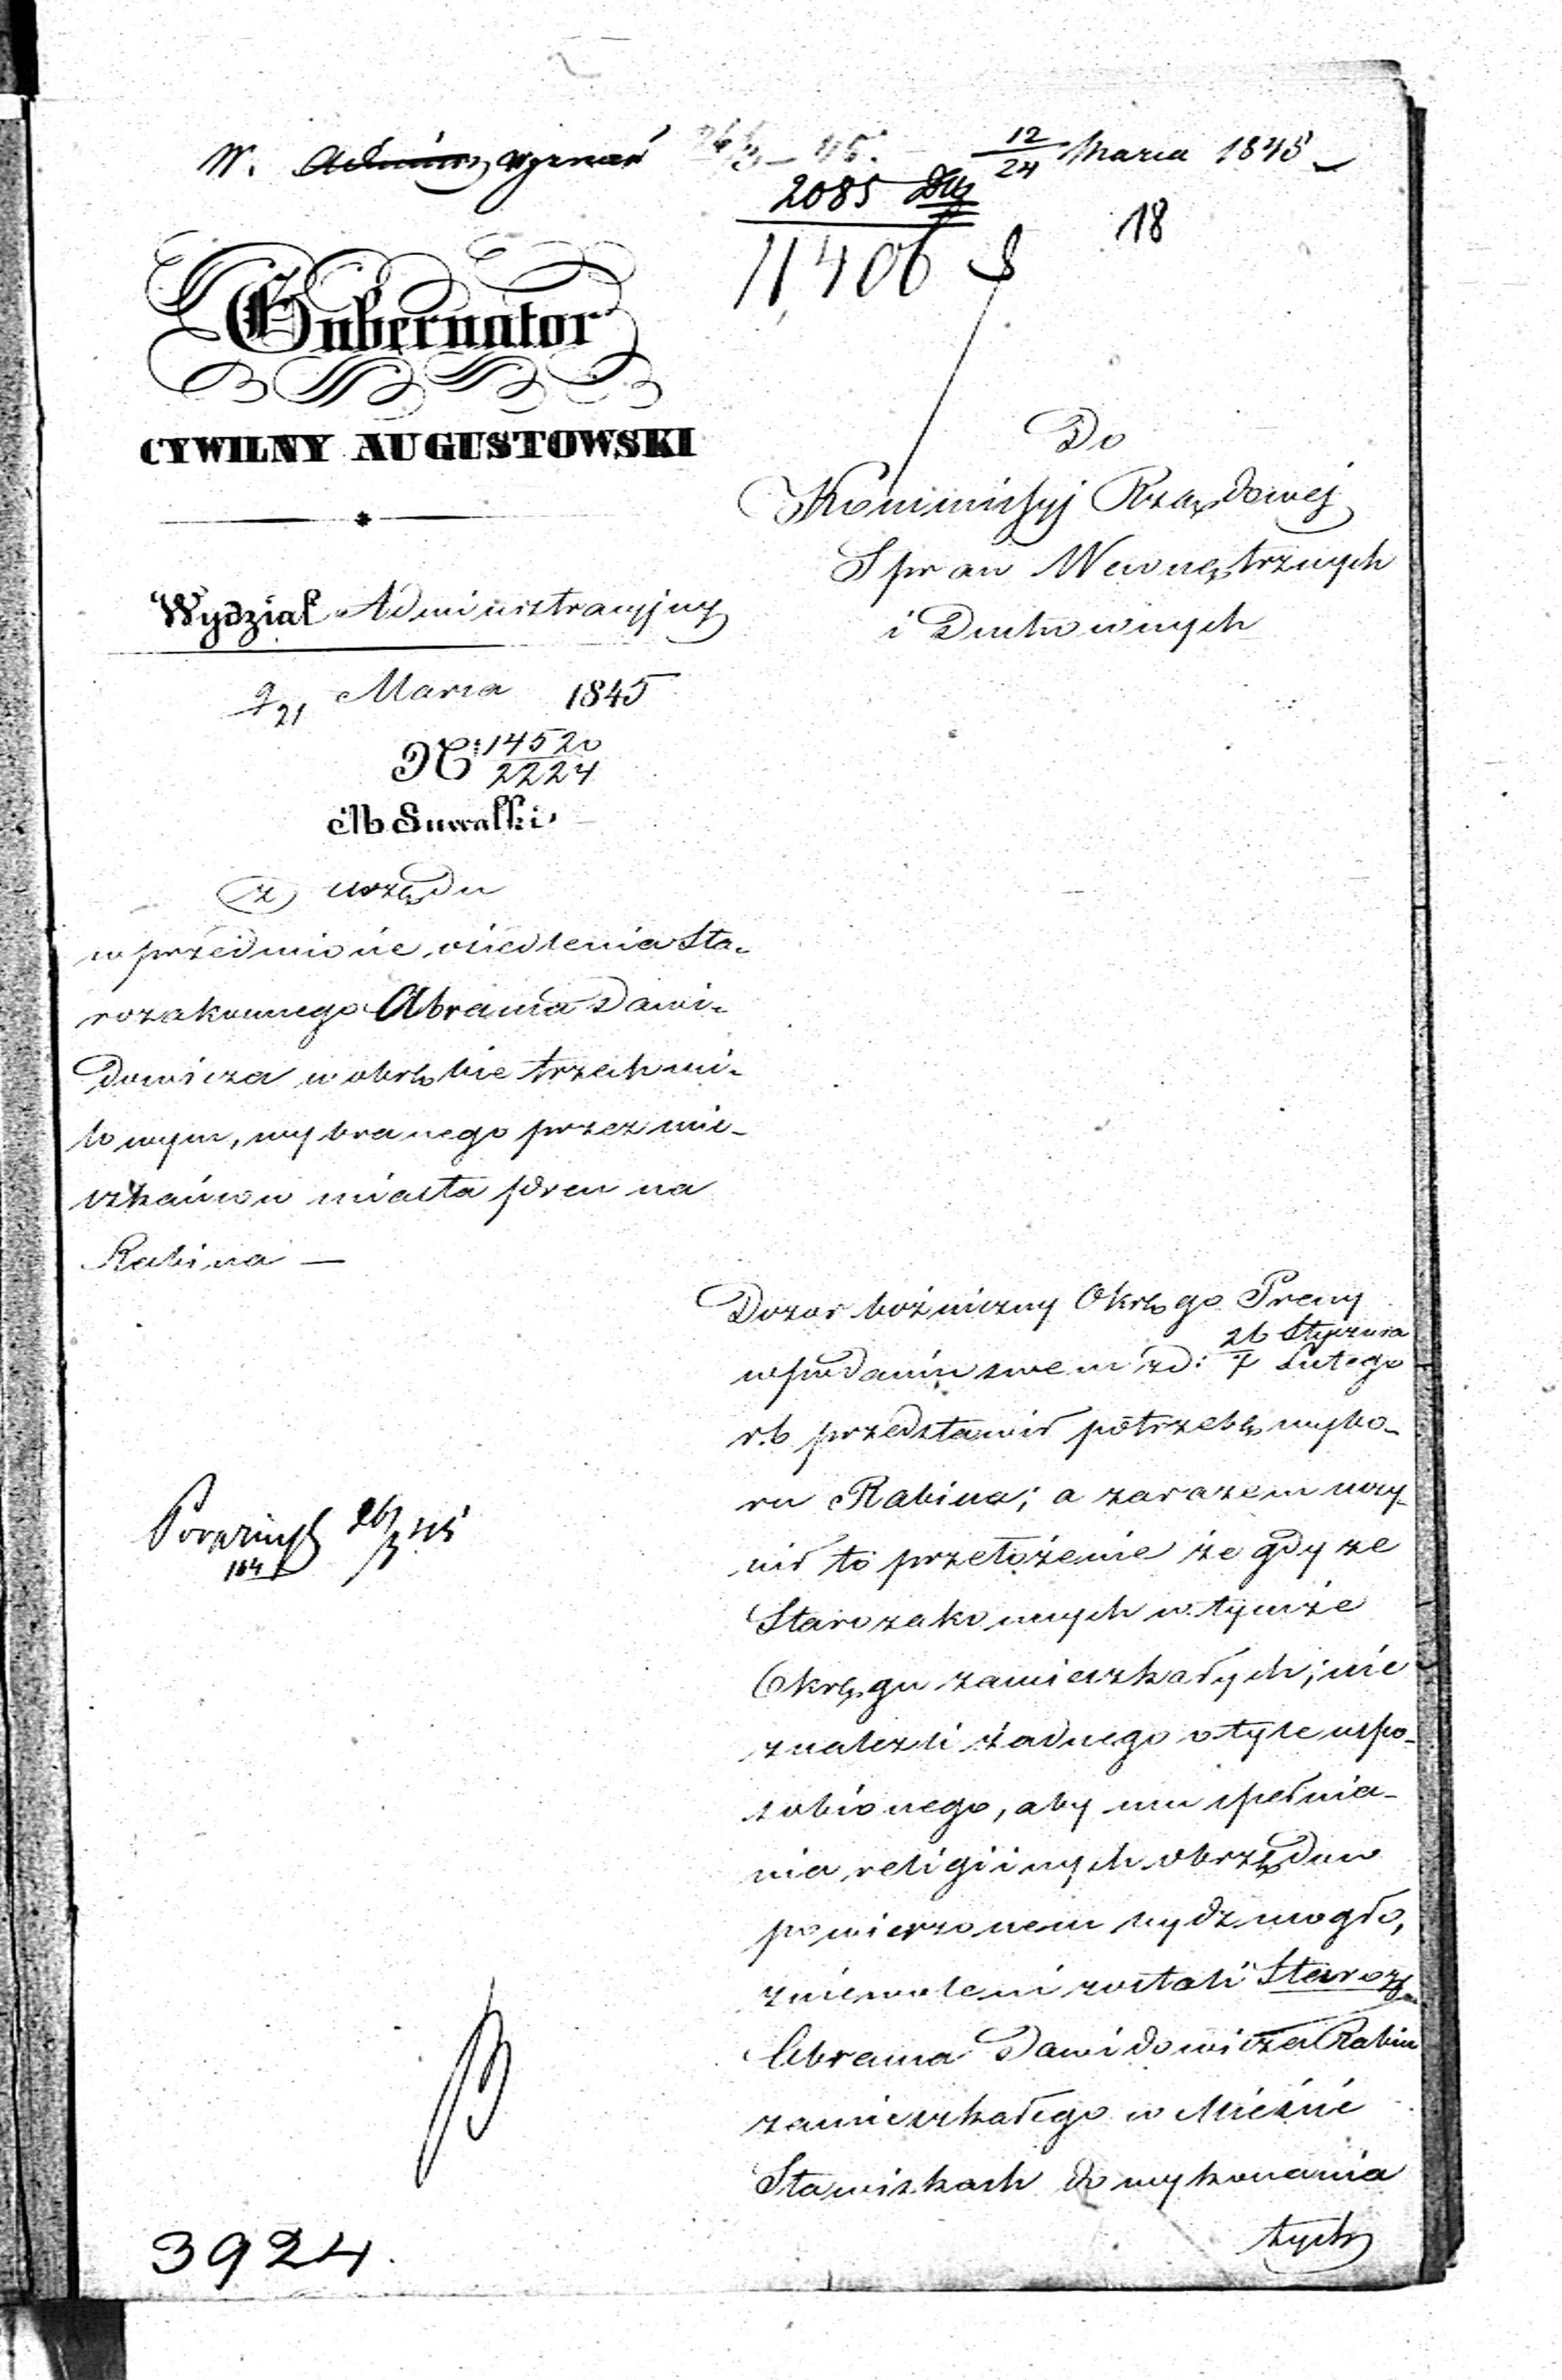 W. Wyznań
12/24 Marca 1845
2085
18
11406
Gubernator
CYWILNY AUGUSTOWSKI
Wydział Administracyjny
9/21 Marca 1845
N: 14520/2224
M Suwałki
z urzędu
w przedmiocie osiedlenia Sta-
rozakonnego Abrama Dawi-
dowicza w obrębie trzechmi-
lowym, wybranego przez mie-
szkańców miasta Pren na
Rabina —
Do
Kommissyi Rządowej
Spraw Wewnętrznych
i Duchownych
Dozor bożniczny Okręgo Preny
w podaniu swem zd: 26 Stycznia/7 Lutego
r.b przedstawił potrzebę wybo-
ru Rabina; a zarazem uczy-
nił to przełożenie że gdy ze
Starozakonnych w tymże
Okręgu zamieszkałych; nie
znalezli żadnego o tyle uspo-
sobionego, aby mu spełnia-
nia religiinych obrzędow
powierzonem bydz mogło,
zniewoleni zostali Staroz
Abrama Dawidowicza Rabin
zamieszkałego w Mieście
Stawiskach do wykonania
tych
26/3 45
184
3924.